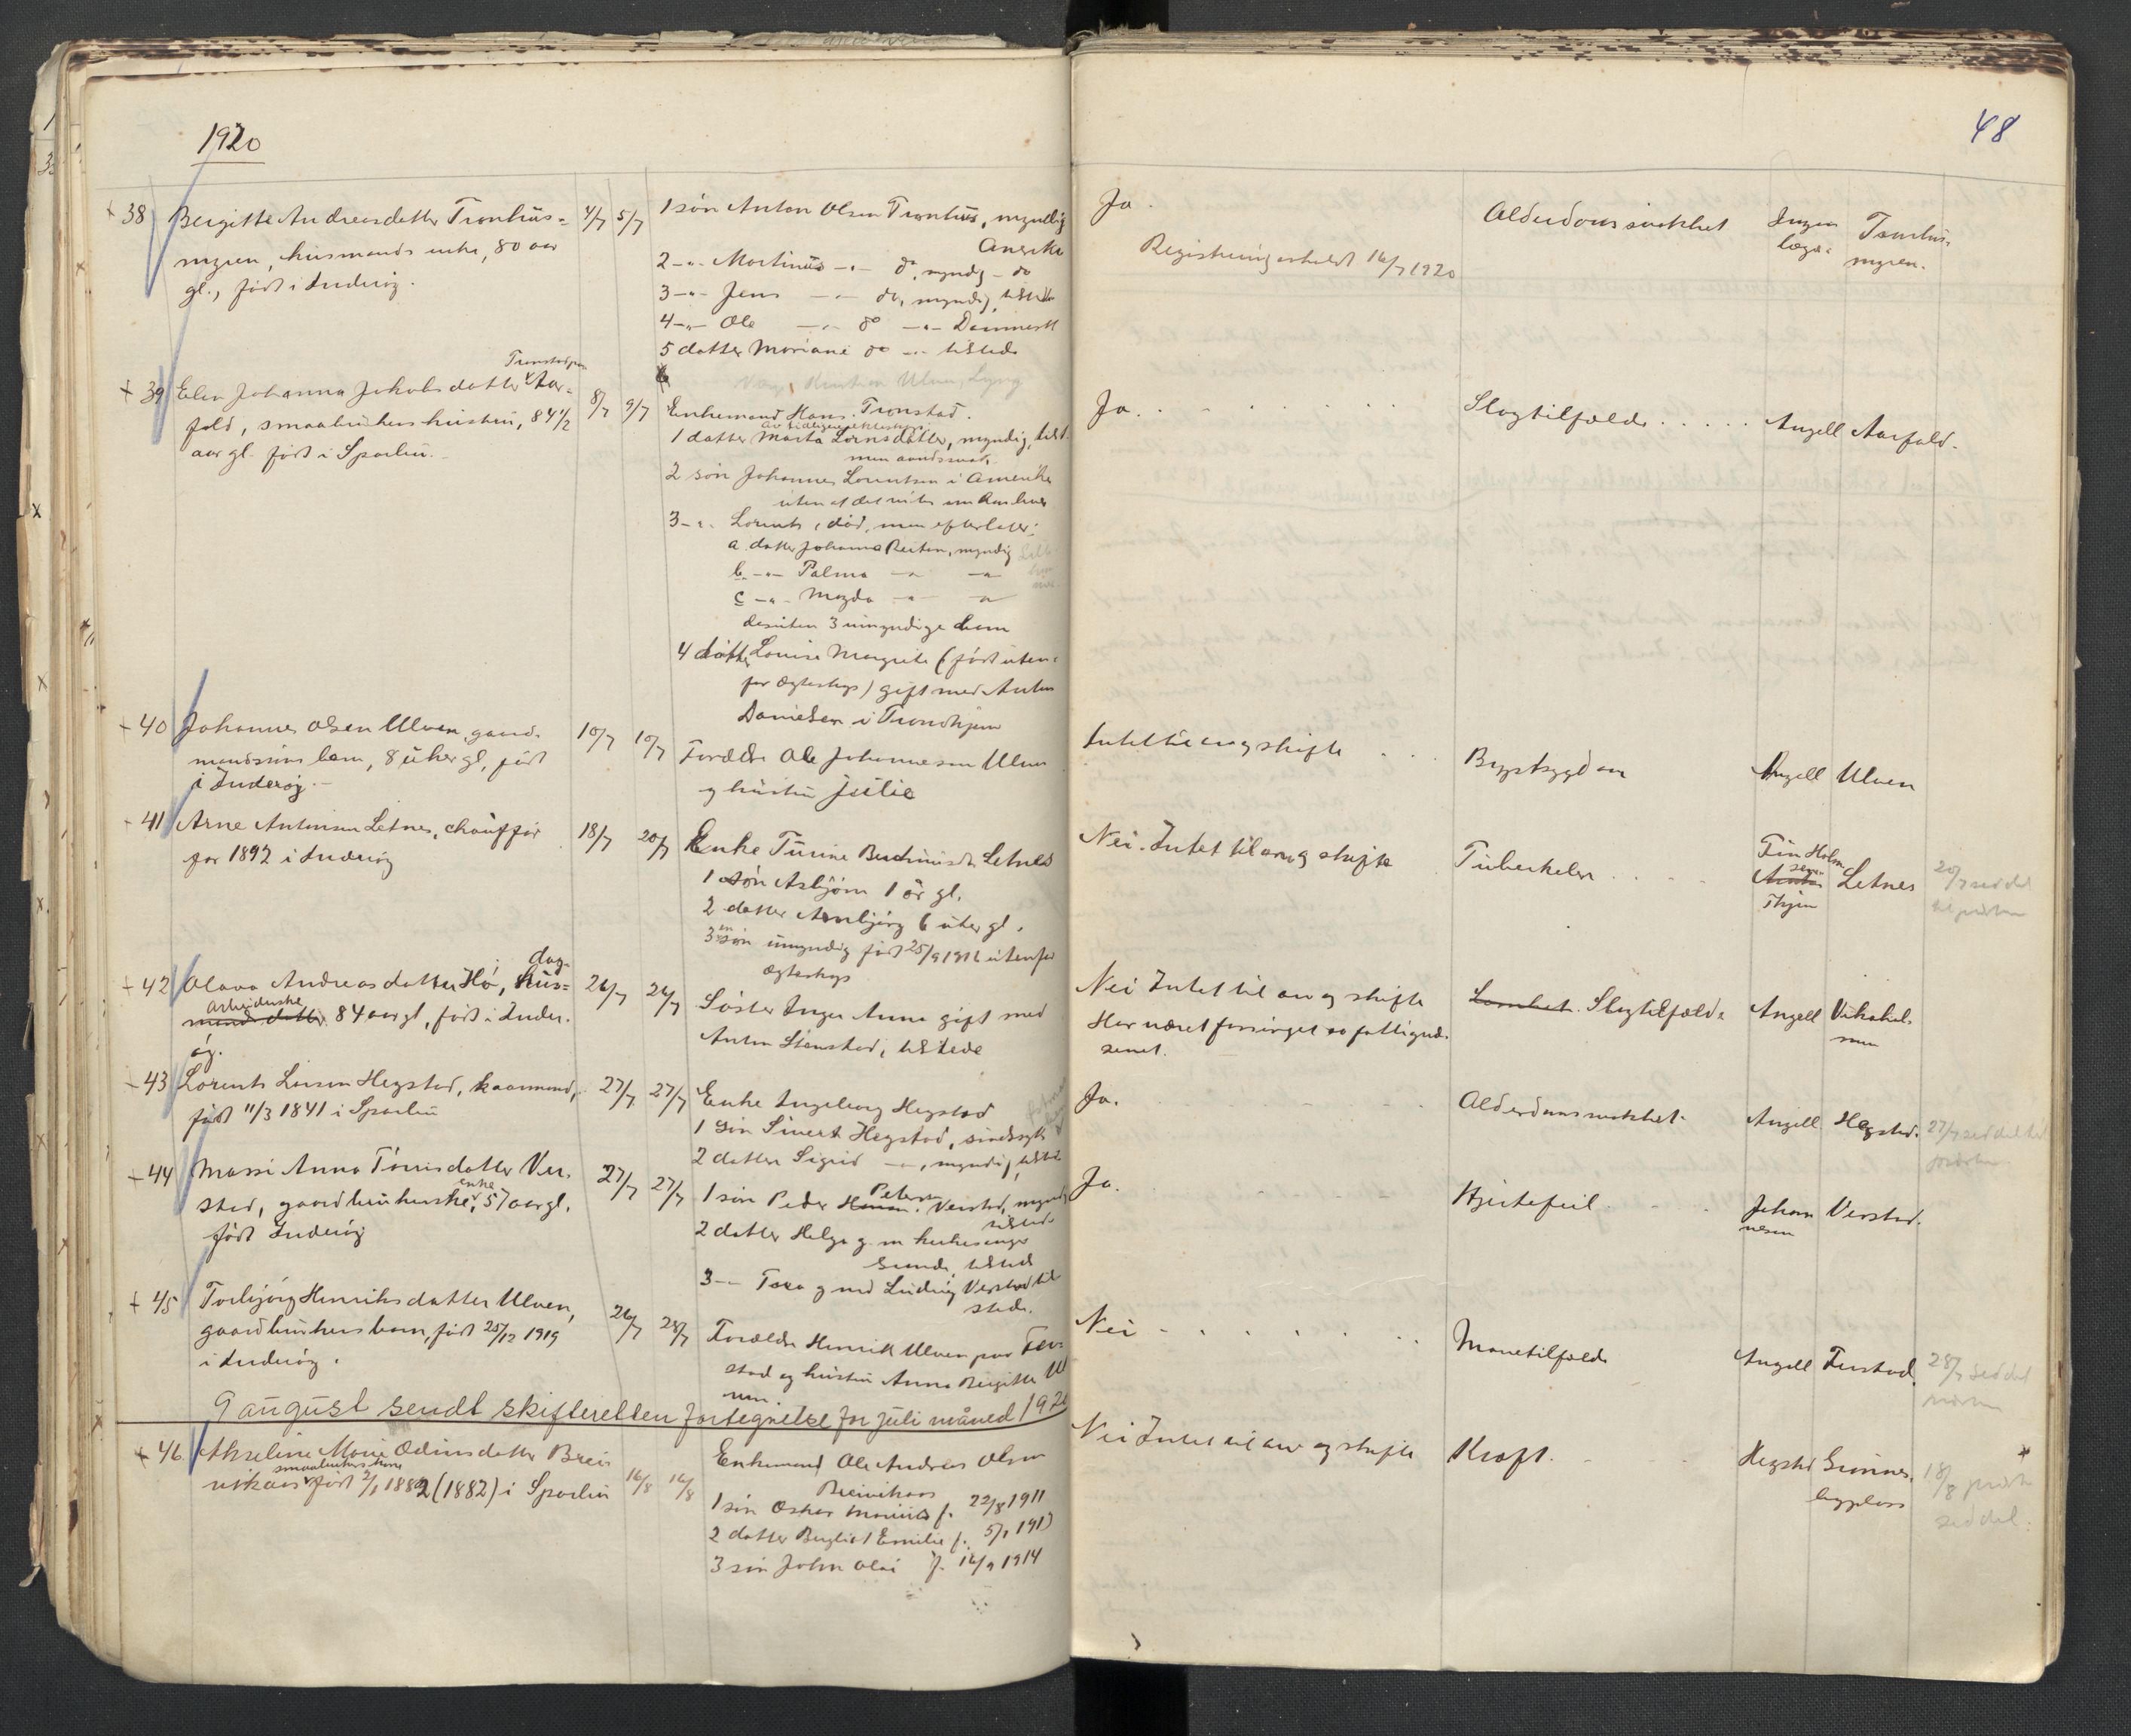 1920
48
38 Bergitte Andreasdatter Tronhus=
myren, husmands enke, 80 aar
gl., født i Inderøy.
4/7 5/7
1 søn Anton Olsen Tronhus, myndig
Amerika
2 -"- Martinus -"- do, myndg - do
3 -"- Jens -"- do, myndig, tilstede
4 -"- Ole -"- do -"- Danmark
5 datter Mariane do -"- tilstede
Ja.
Registrering avholdt 16/7 1920
Alderdomssvakhet
Ingen
læge.
Tronhus-
myren.
39 Elen Johanna Jakobsdatter Aar=
fald, smaabrukers hustru, 84 1/2
aar gl. født i Sparbu.
8/7 9/7
Enkemand Hans Tronstad.
av tidligere ekteskap:
1 datter Marta Lornsdatter, myndig, tilst.
men aandssvak.
2 søn Johannes Lorentsen i Amerika
uten at det vites om han lever
3 -"- Lorents, død, men efterlater:
a datter Johanna Reiten, myndig
b -"- Palma -"- -"-
c -"- Magda -"- -"-
desuten 3 umyndige barn
4 datter Louise Margrete (født uten-
for ægteskap) gift med Anton
Danielsen i Trondhjem
Ja.
Slagtilfælde
Angell Aarfald.
40 Johannes Olsen Ulven, gaard-
mandssøns barn, 8 uker gl, født
i Inderøy.
10/7 10/7
Forældre Ole Johannesen Ulven
og hustru Julie
Intet til arv og skifte
Brystsygdom
Angell Ulven
41 Arne Antonsen Letnes, chauffør
før 1892 i Inderøy
18/7 20/7
Enke Turine Letnes
1 søn Asbjørn 1 år gl.
2 datter Arnbjørg 6 uker gl.
3 en søn umyndig født 25/9 1916 utenfor
ægteskap
Nei. Intet til arv og skifte
Tuberkelose
Fin Holm
sen
Thjem
Letnes
20/7 seddel
til presten
42 Olava Andreasdatter Hø, dag-
hus=
arbeiderske
mands datter 84 aar gl, født i Inder-
øy.
26/7 26/7
Søster Inger Anna gift med
Anton Stenstad, tilstede
Nei Intet til arv og skifte
Har været forsørget av fattigvæ-
senet.
Slagtilfælde
Angell
43 Lorents Larsen Hegstad, kaarmand,
født 11/3 1841 i Sparbu
27/7 27/7
Enke Ingeborg Hegstad
1 søn Sivert Hegstad, sindssyk
2 datter Sigrid -"-, myndig, tilstede
Ja.
Alderdomssvakhet.
Angell Hegstad.
27/7 seddel til
presten.
44 Massi Anna Tønnisdatter Ver-
stad, gaardbrukerske, enke 57 aar gl.
født Inderøy
27/7 27/7
1 søn Peder Petersen Verstad, myndg
tilstede
2 datter Helga g. m kirkesanger
Sunde, tilstede
3 -"- Tora g med Ludvig Verstad til
stede.
Ja.
Hjertefeil
Johan
nesen
Verstad.
45 Torbjørg Henriksdatter Ulven,
gaardbrukers barn, født 25/12 1919
i Inderøy.
26/7 28/7
Forældre Henrik Ulven paa Fer-
stad og hustru Anna Bergitte Ul
ven.
Nei
Mavetilfælde
Angell Ferstad.
28/7 seddel
presten
9 august sendt skifteretten fortegnelse for juli måned 1920
46. Akseline Marie Odinsdatter Brei
vikaas smaabrukers kone født 2/1 1882 (1882) i Sparbu
16/8 16/8
Enkemand Ole Andreas Olsen
Breivikaas
1 søn Oskar Marius f. 22/8 1911
2 datter Bergliot Emilie f. 5/1 1913
3 søn John Olai f. 16/9 1914
Nei Intet til arv og skifte
Kræft.
Hegstad
18/8 prest
seddel.